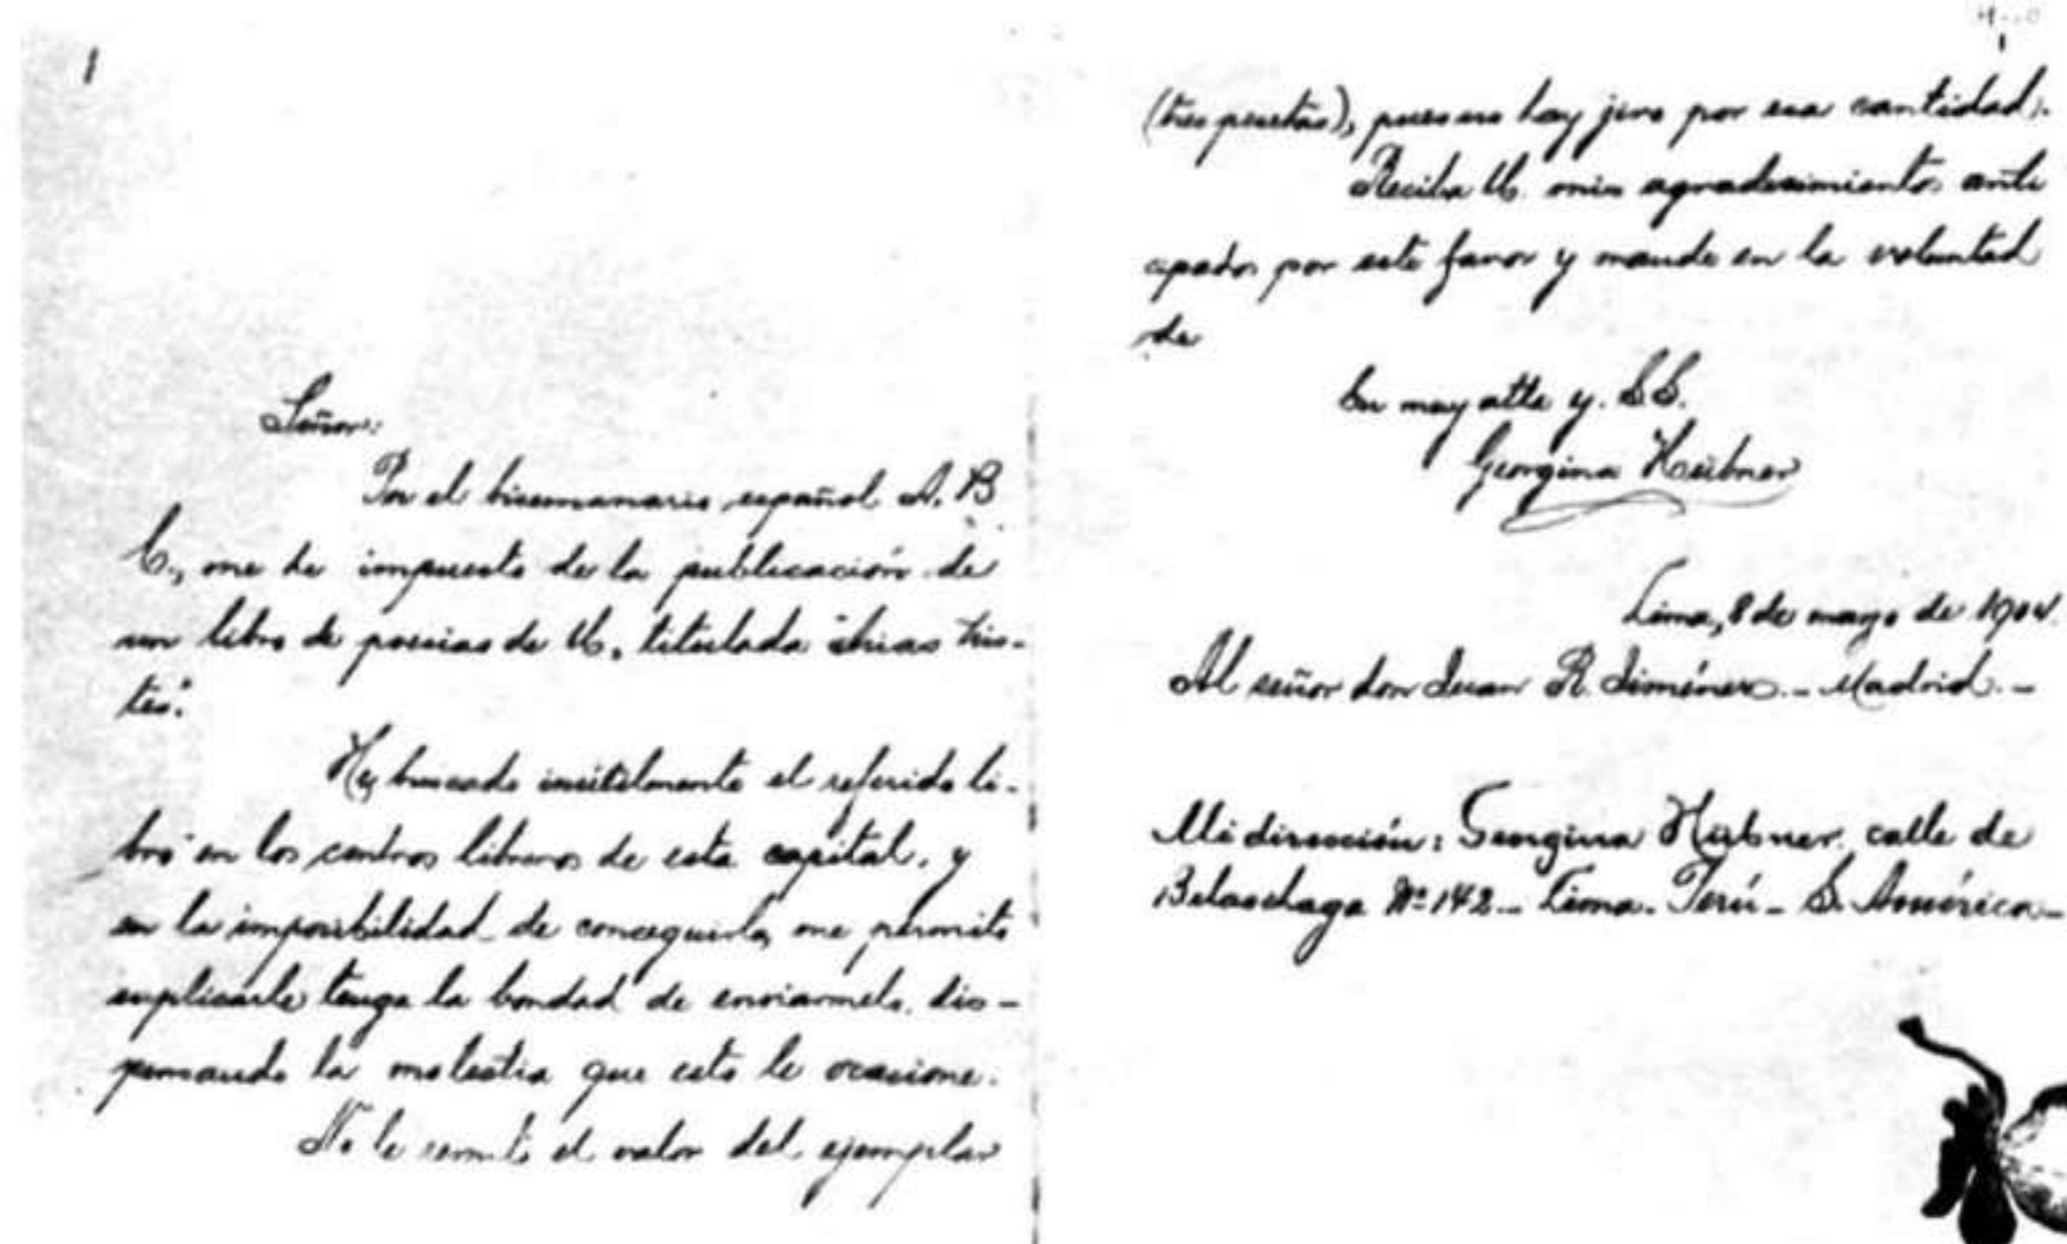 1
Señor:
Por el bisemanario español A. B
C., me he impuesto de la publicación de
un libro de poesias de U., titulada "Arias tris-
tes".
He buscado inútilmente el referido li-
bro en los centros libreros de esta capital, y
en la imposibilidad de conceguirlo, me permito
suplicarle tenga la bondad de enviarmelo, dis-
pensando la molestia que esto le ocasione.
No le remito el valor del ejemplar
(tres pesetas), pues no hay jiro por esa cantidad.
Reciba U. mis agradesimientos anti
cipados por este favor y mande en la voluntad
de
Su muy atta y. S.S.
Georgina Hübner
Lima, 8 de mayo de 1904.
Al señor don Juan R. Jiménez.- Madrid.-
Mi dirección: Georgina Hübner. calle de
Belaochaga Nº 142.- Lima. Perú - S. América-